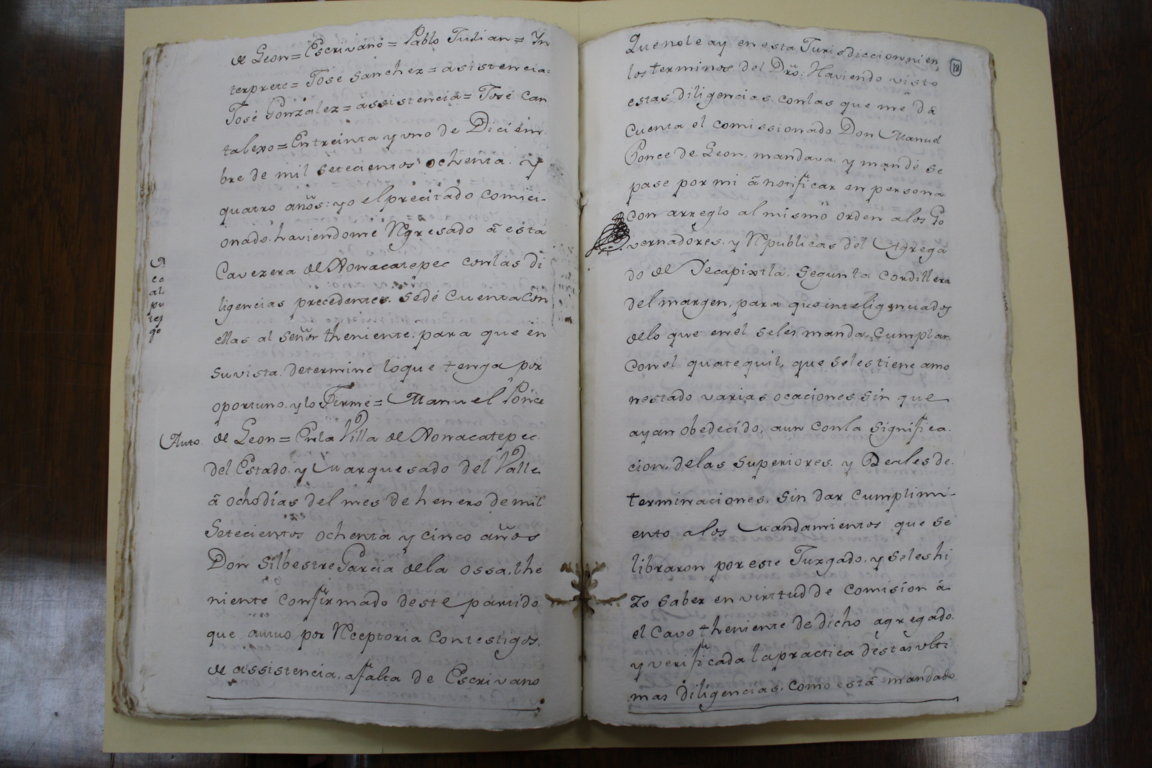 de Leon = Escrivano = Pablo Julian = Yn
terprete = Jose Sanchez = asistencia =
Jose Gonzalez = assistencia = Jose Can
talexo = En treinta y uno de Diciem
bre de mil setecientos ochenta, y
quatro años: yo el precitado comici-
onado, haviendome Ngresado â esta
Cavezera de Xonacatepec con las Di
ligencias precedentes, se dé cuenta con
ellas al señor theniente, para que en
su vista determine lo que tenga por
oportuno, y lo Firmé = Manuel Ponce
Auto. de Leon = En la Villa de Xonacatepec
del Estado, y Marquesado del Valle
â ocho dias del mes de henero de mil
Setecientos ochenta y cinco años
Don Silbestre Garcia de la ossa, the
niente confirmado de este partido
que autuo por Nceptoria con testigos,
de assistencia, a falta de Escrivano
Que no le ay en esta Jurisdiccion ni en
los terminos del Dro: Haviendo visto
estas diligencias, con las que me dá
cuenta el comissionado Don Manuel
Ponce de Leon, mandava, y mandé se
pase por mi â notificar en persona
con arreglo al mismo orden a los Go
vernadores, y Npublicas del Agrega
do de Tecapixtla, segun la cordillera
del margen, para que inteligenciados
de lo que en el se les manda, Cumplan
con el quatequil, que se les tiene amo
nestado varias ocaciones sin que
ayan obedecido, aun con la Significa-
cion, de las Superiores, y Reales de-
terminaciones, sin dar cumplimi-
ento a los Mandamientos que se
libraron por este Juzgado, y se les hi
zo saber en virtud de comision â
el Cavo theniente de dicho agregado,
y verificada la practica de estas ulti
mas diligencias, como está mandado